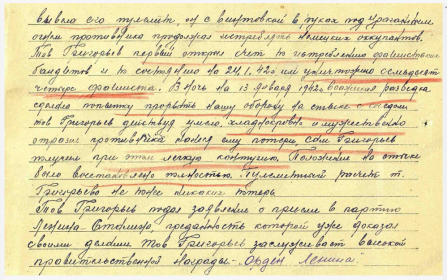 вывела его пулемет, он с винтовкой в руках под ураганным
огнем противника продолжал истреблять немецких оккупантов.
Тов Григорьев первый открыл счет по истреблению фашистских
бандитов и по состоянию на 24.1.42г им уничтожено осемьдесят
четыре фашиста. В ночь на 13 января 1942г. разведка
сделала попытку прорвать нашу оборону на стыке с соседом
Тов Григорьев действуя умело, хладнокровно и мужественно
отразил противника нанеся ему потери Сам Григорьев
получил при этом легкую контузию. Положение на стыке
было восстановлено полностью. Пулеметный расчет т.
Григорьева не понес никаких потерь
Тов Григорьев подал заявление о приеме в партию
Ленина Сталина, преданность которой уже доказал
своими делами Тов Григорьев заслуживает высокой
правительственной награды - Орден Ленина.